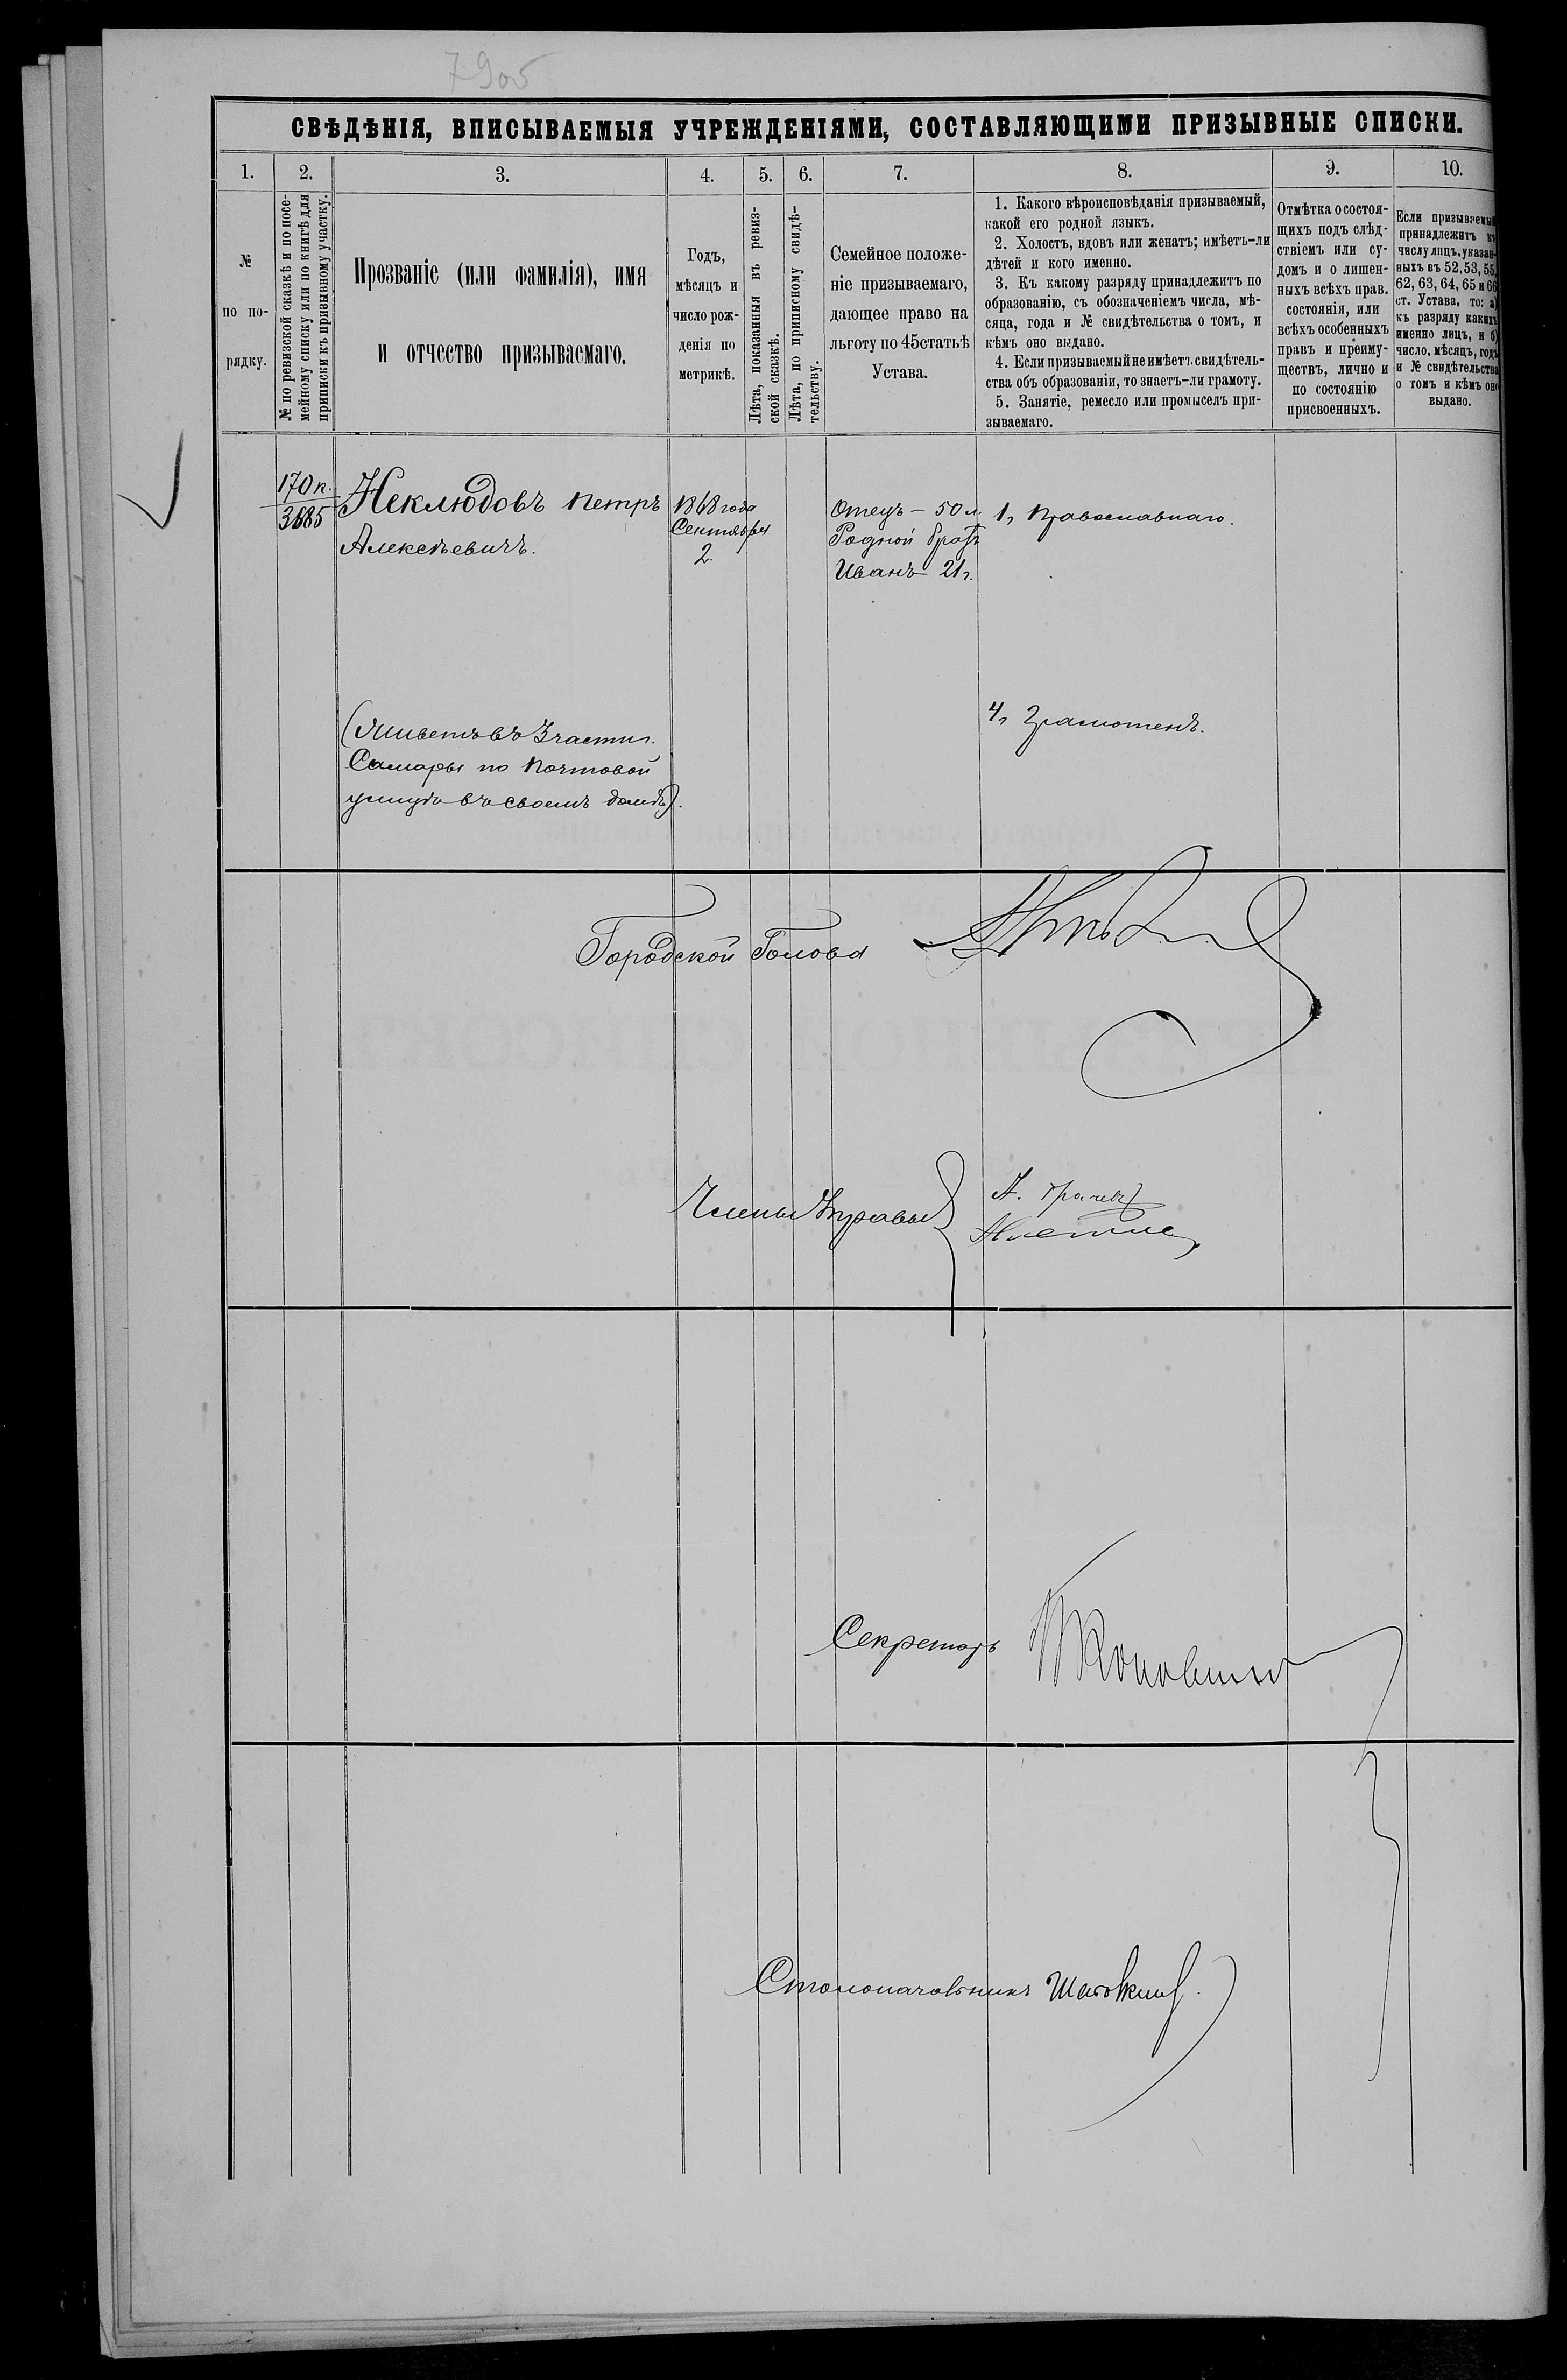 7905
СВѢДѢНІЯ, ВПИСЫВАЕМЫЯ УЧРЕЖДЕНІЯМИ, СОСТАВЛЯЮЩИМИ ПРИЗЫВНЫЕ СПИСКИ.
1. 2. 3. 4. 5. 6. 7. 8. 9. 10.
№
по по-
рядку.
№ по ревизской сказкѣ и по посе-
мейному списку или по книгѣ для
приписки къ призывному участку.
Прозваніе (или фамилія), имя
и отчество призываемаго.
Годъ,
мѣсяцъ и
число рож-
денія по
метрикѣ.
Лѣта, показанныя въ ревиз-
ской сказкѣ.
Лѣта, по приписному свидѣ-
тельству.
Семейное положе-
ніе призываемаго,
дающее право на
льготу по 45 статьѣ
Устава.
1. Какого вѣроисповѣданія призываемый,
какой его родной языкъ.
2. Холостъ, вдовъ или женатъ; имѣетъ-ли
дѣтей и кого именно.
3. Къ какому разряду принадлежитъ по
образованію, съ обозначеніемъ числа, мѣ-
сяца, года и № свидѣтельства о томъ, и
кѣмъ оно выдано.
4. Если призываемый не имѣетъ свидѣтель-
ства объ образованіи, то знаетъ-ли грамоту.
5. Занятіе, ремесло или промыселъ при-
зываемаго.
Отмѣтка о состоя-
щихъ подъ слѣд-
ствіемъ или су-
домъ и о лишен-
ныхъ всѣхъ прав.
состоянія, или
всѣхъ особенныхъ
правъ и преиму-
ществъ, лично и
по состоянію
присвоенныхъ.
Если призываемый
принадлежитъ къ
числу лицъ, указан-
ныхъ въ 52, 53, 55,
62, 63, 64, 65 и 66
ст. Устава, то: а)
къ разряду какихъ
именно лицъ, и б)
число, мѣсяцъ, годъ
и № свидѣтельства
о томъ и кѣмъ оно
выдано.
170 к.
3685
Неклюдовъ Петръ
Алексѣевичъ.
1868 года
Сентября
2.
Отецъ – 50 л.
Родной братъ
Иванъ – 21 г.
1, Православнаго.
4, Грамотенъ.
(Живетъ въ 3 части г.
Самары по Почтовой
улицѣ въ своемъ домѣ).
Городской Голова
Члены Управы
Секретарь
Столоначальникъ